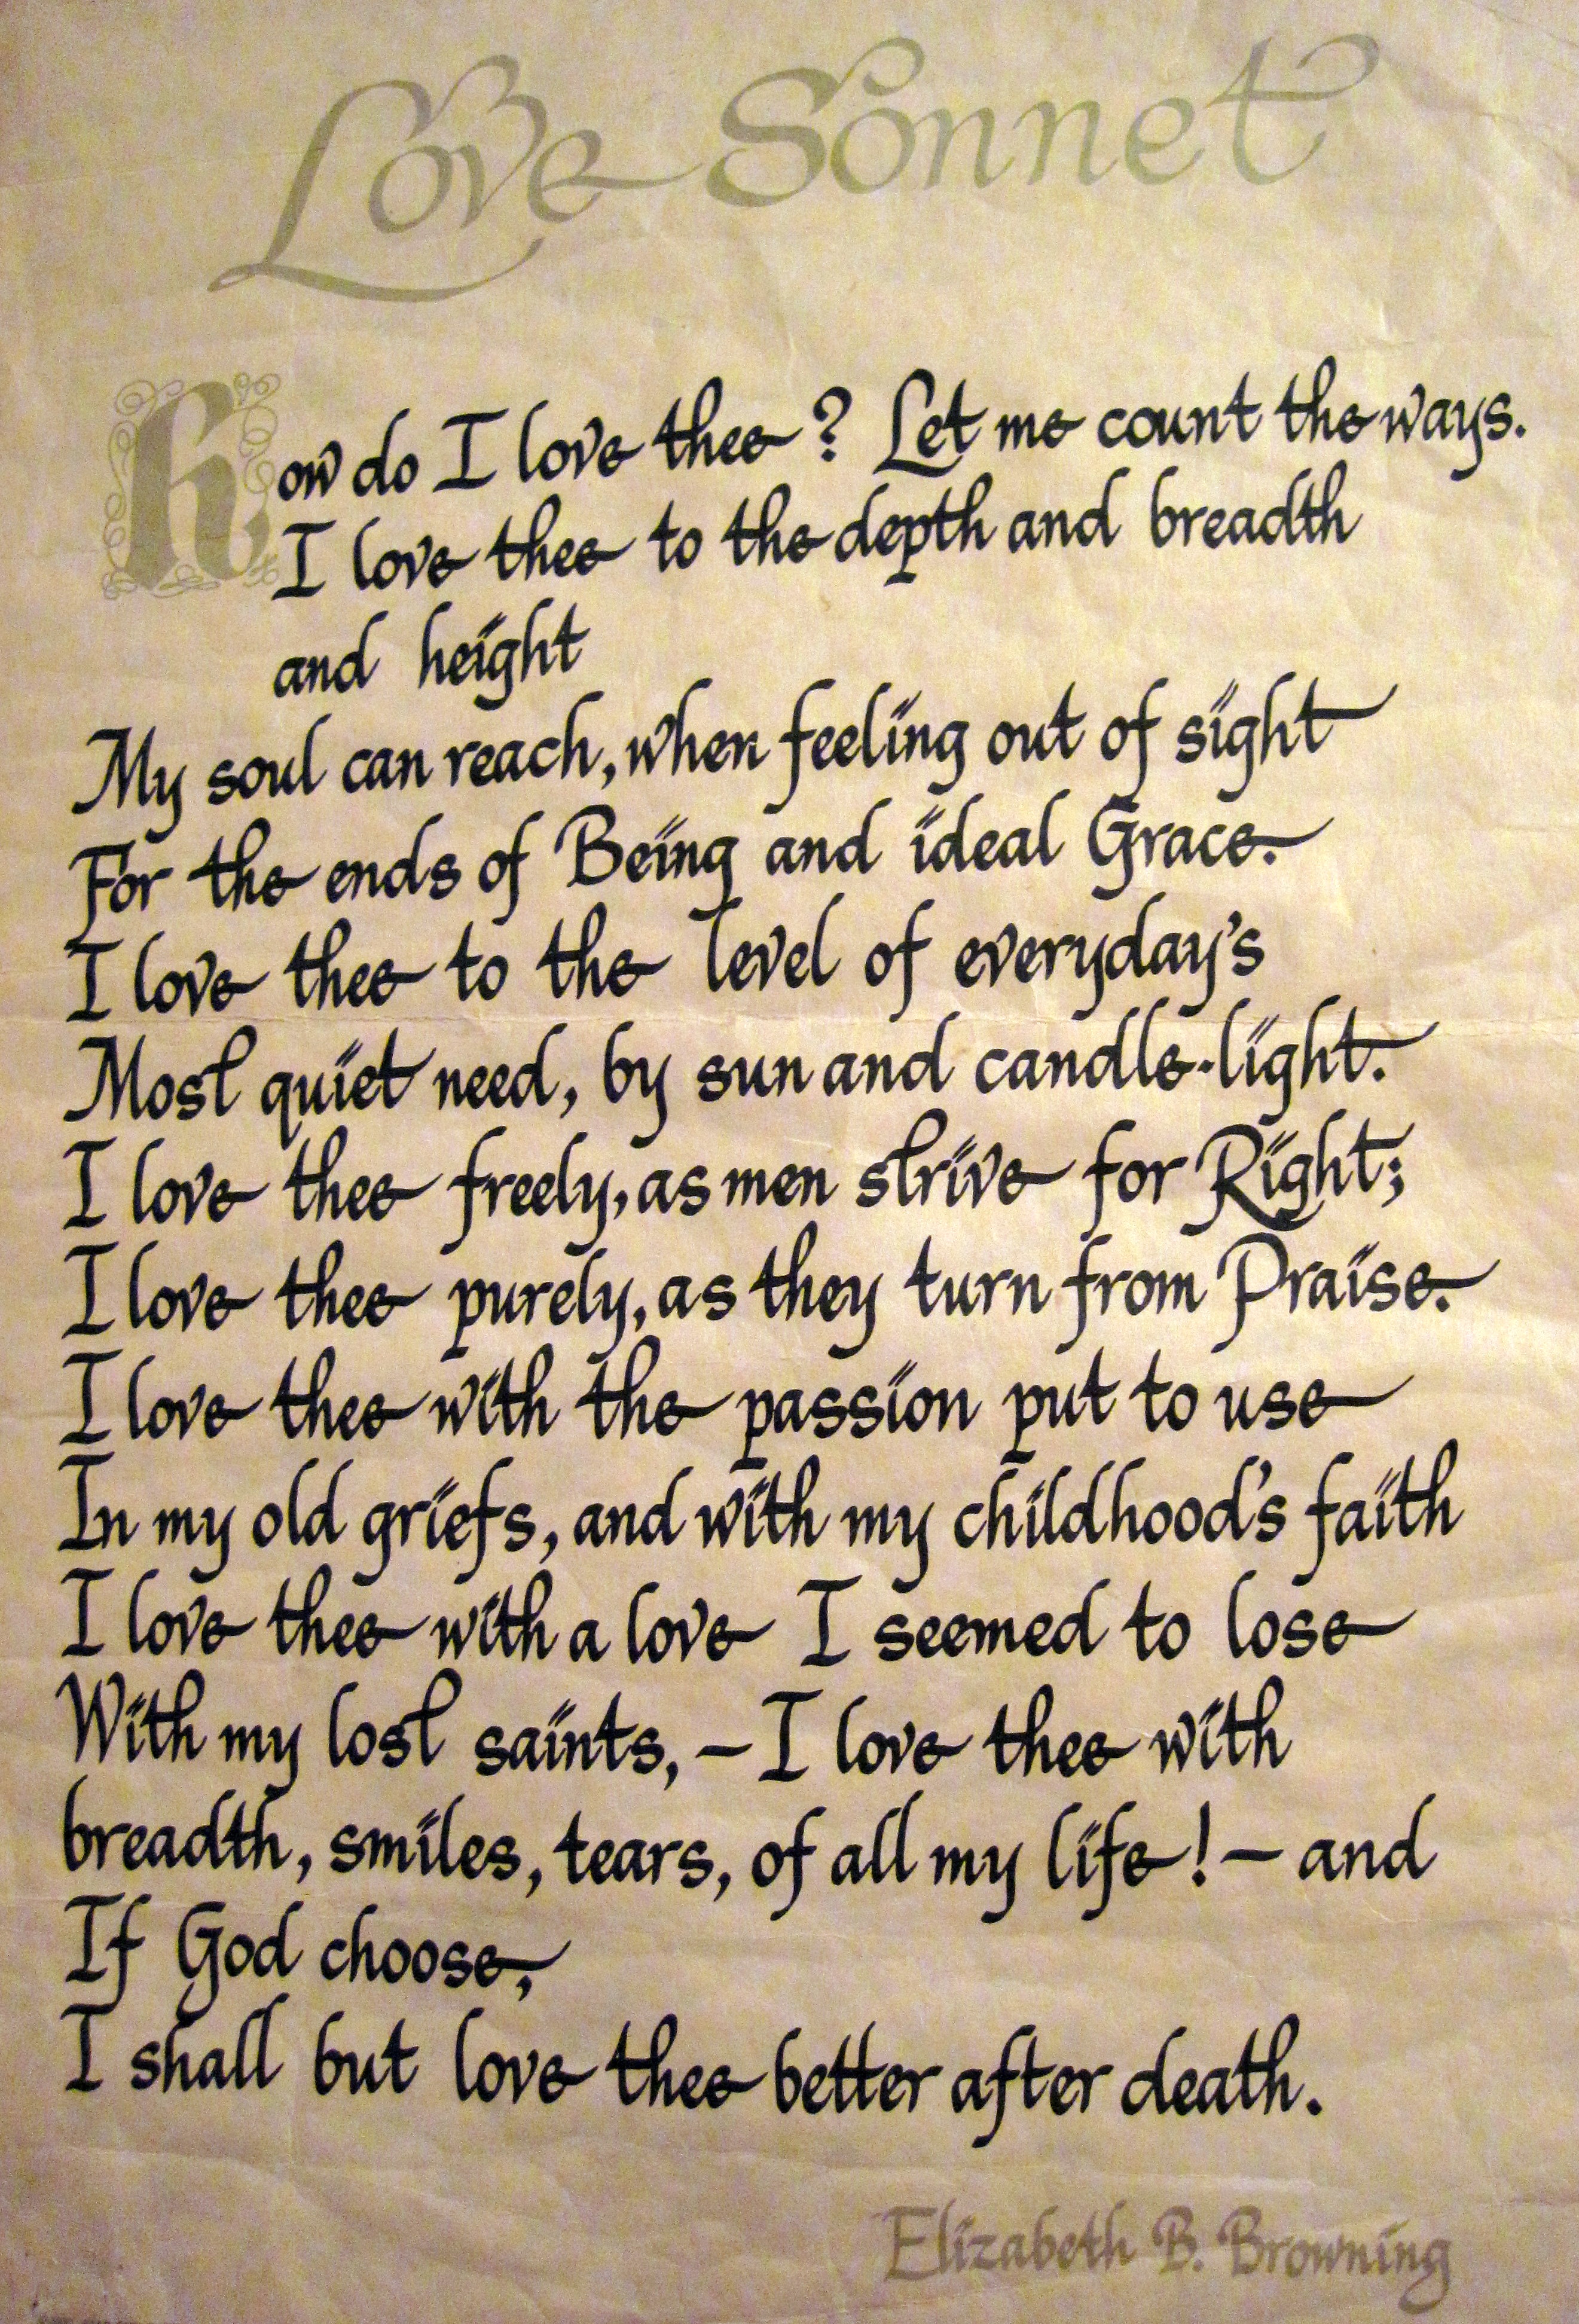 Love Sonnet
How do I love thee? Let me count the ways.
I love thee to the depth and breadth
and height
My soul can reach, when feeling out of sight
For the ends of Being and ideal Grace.
I love thee to the level of everyday's
Most quiet need, by sun and candle-light.
I love thee freely, as men strive for Right;
I love thee purely, as they turn from Praise.
I love thee with the passion put to use
In my old griefs, and with my childhood's faith
I love thee with a love I seemed to lose
With my lost saints, – I love thee with
breadth, smiles, tears, of all my life! – and
If God choose,
I shall but love thee better after death.
Elizabeth B. Browning